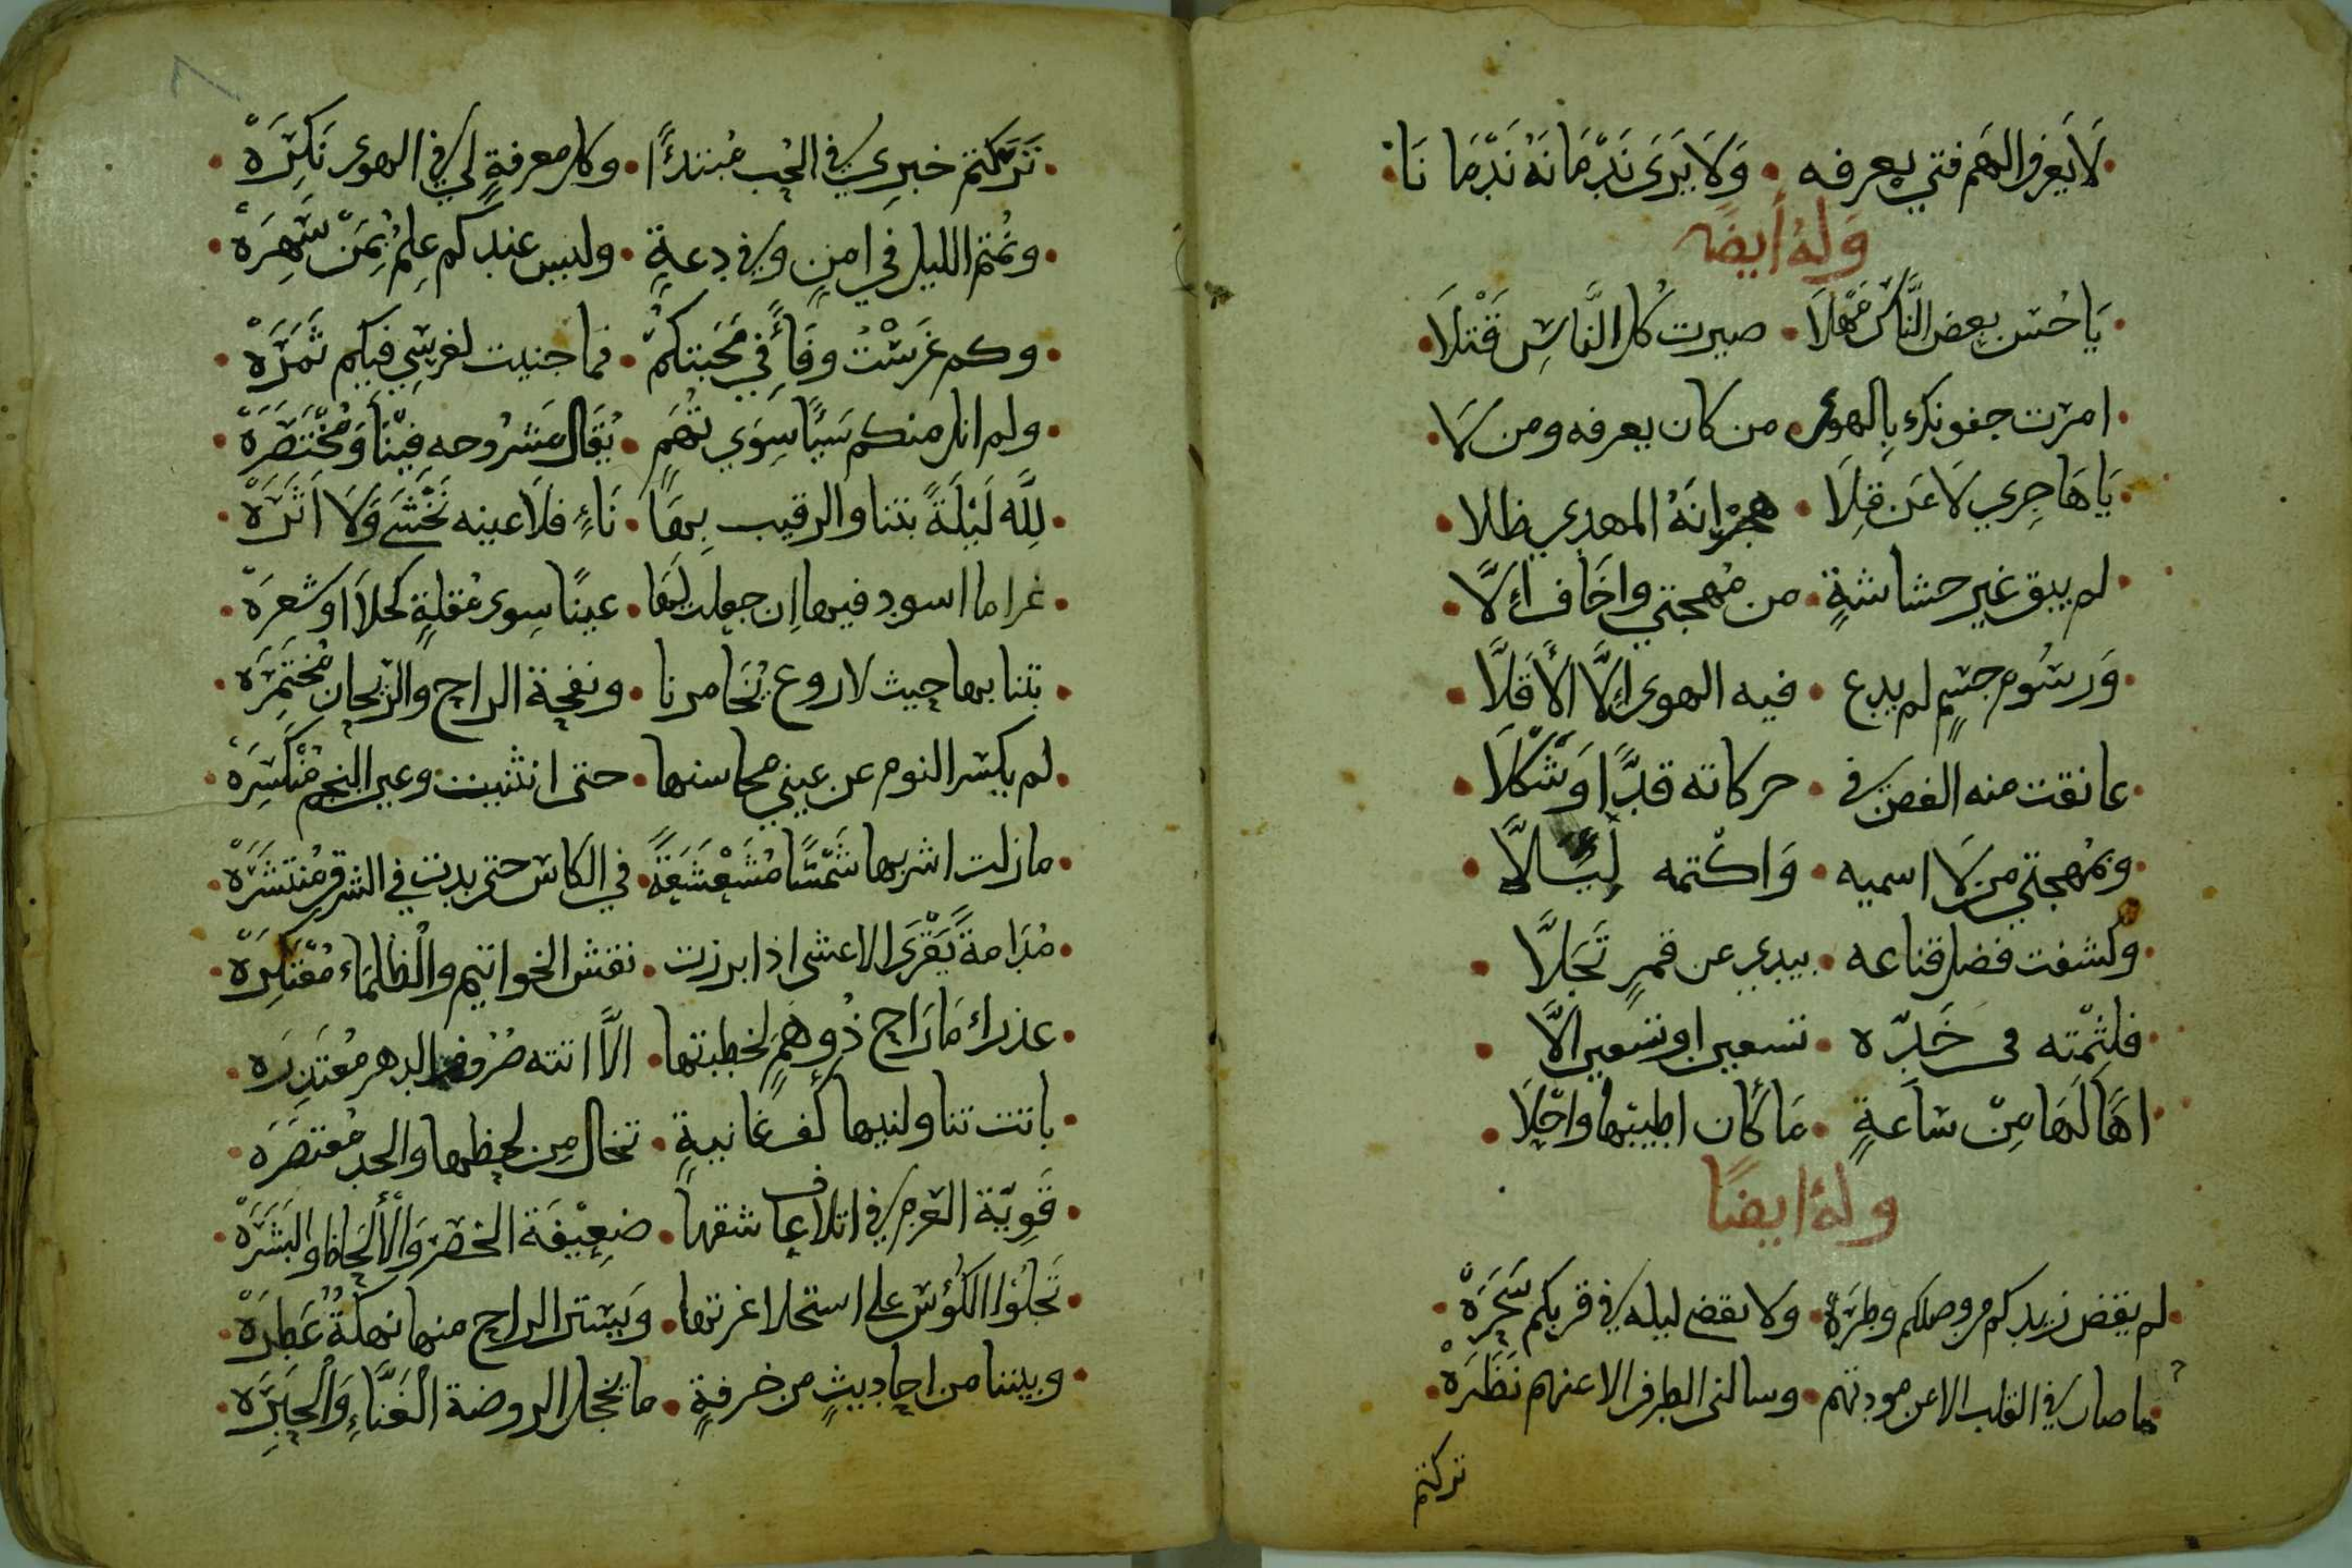 لَا يَعْرف الهَم فتي يعرفه • وَلَا يَرَى نَدْمَانَهُ نَدْمَا نَا
وَلهُ أَيضًا
يَا حُسن بعض النَّاس مَهْلَا • صيرت كل الناسِ قَتْلَا
امرت جفونك بِالهوى • من كان يعرفه ومن لا
يَا هَاجِري لَا عَن قِلَا • هجرانهُ المهدي ظلا
لم يبق غير حشاشةٍ • من مُهجتي واخَاف الَّا
وَرسُوم جسمٍ لم يدع • فيه الهوى الَّا الأقلَّا
عانقت منه الغصن في • حركاته قدًّا وَشَكْلَا
وبمُهجتي من لَا اسميه • وَاكتمه لِيَلَّا
وكشفت فضل قناعه • بيدي عن قمرٍ تَجَلَّا
فلثمْته في خَدّه • تسعين او تسعين الَّا
اهَا لَهَا مِنْ سَاعَةٍ • مَا كَان اطيبَهَا واحْلَا
وله ايضًا
لم يقض زيدكم من وصلكم وطرَهْ • ولا يقضي ليله في قربكم سَحَرَهْ
ما صار في القلب الا عن مودتهم • وسالني الطرف الا عنهم نظَرَهْ
تركتم
تَرَكتم خبري في الحُب مُبتدءًا • وكل معرفةٍ لي في الهوى نَكِرَهْ
ونُمتم الليل في امنٍ وفي دعةٍ • وليس عندكم عِلمٌ بِمَنْ سَهِرَهْ
وكم غَرَسْتُ وفَاءً في مَحَبتكمْ • فما جنيت لغرسِي فيكم ثَمَرَهْ
ولم انل منكم شيًا سِوَي تُهَمٍ • يُقَال مَشرُوحه فِيْنَا وَمُخْتَصَرَهْ
لِلَّه لَيْلَةً بتنا والرقيب بِهَا • نَاءٍ فلَا عينه نَخْشَى وَلَا اَثَرَهْ
غراما اسود فيها اِن جعلت لَهَا • عينًا سِوى مُقلةٍ كَحْلَا او شعرَهْ
بتنا بها حيث لا روع يُخَامرنا • ونفحة الراح والرّيحان مُختَمِرَه
لم يكسر النوم عن عيني محاسنها • حتى انثنيت وعين النجم مُنْكَسِرَهْ
ما زلت اشربها شَمْسًا مُشَعْشَعَةً • في الكاس حتى بدت في الشرق مُنتشرَهْ
مُدَامةً يَقْرَى الاعشى اذا برزت • نقش الخواتيم والظلمَاء مُعْتَكِرَهْ
عذراء مَا رَاح ذُو هَمٍ لخطبتها • الَّا اتته صُرُوف الدهر مُعتَذِرَه
باتت تناولنيها كف غانيةٍ • تخال مِن لحظها والخد مُعتصَرَه
قَوِيّة العزم في اتلاف عاشقها • ضعِيْفَة الخصر وَالْألحَاظ والبَشَرَهْ
تَجلُوا الكُؤس علي استحلا غرتها • وَيَستر الراح منها نهكَةٌ عَطِرَهْ
وبيننا من احاديثٍ من خرفةٍ • ما تخجل الروضة الْغَنَّاءِ وَالْحِبَرَه